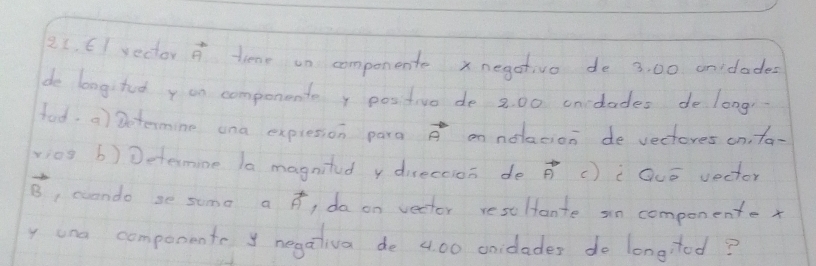 21. El vector A tiene un componente x negativo de 3.00 unidades
de longitud y un componente y positivo de 2.00 unidades de longi-
tud. a) Determine una expresión para A en notación de vectores unita-
rios b) Determine la magnitud y dirección de A c) ¿ Qué vector
B, cuando se suma a A, da un vector resultante sin componente x
y una componente y negativa de 4.00 unidades de longitud ?